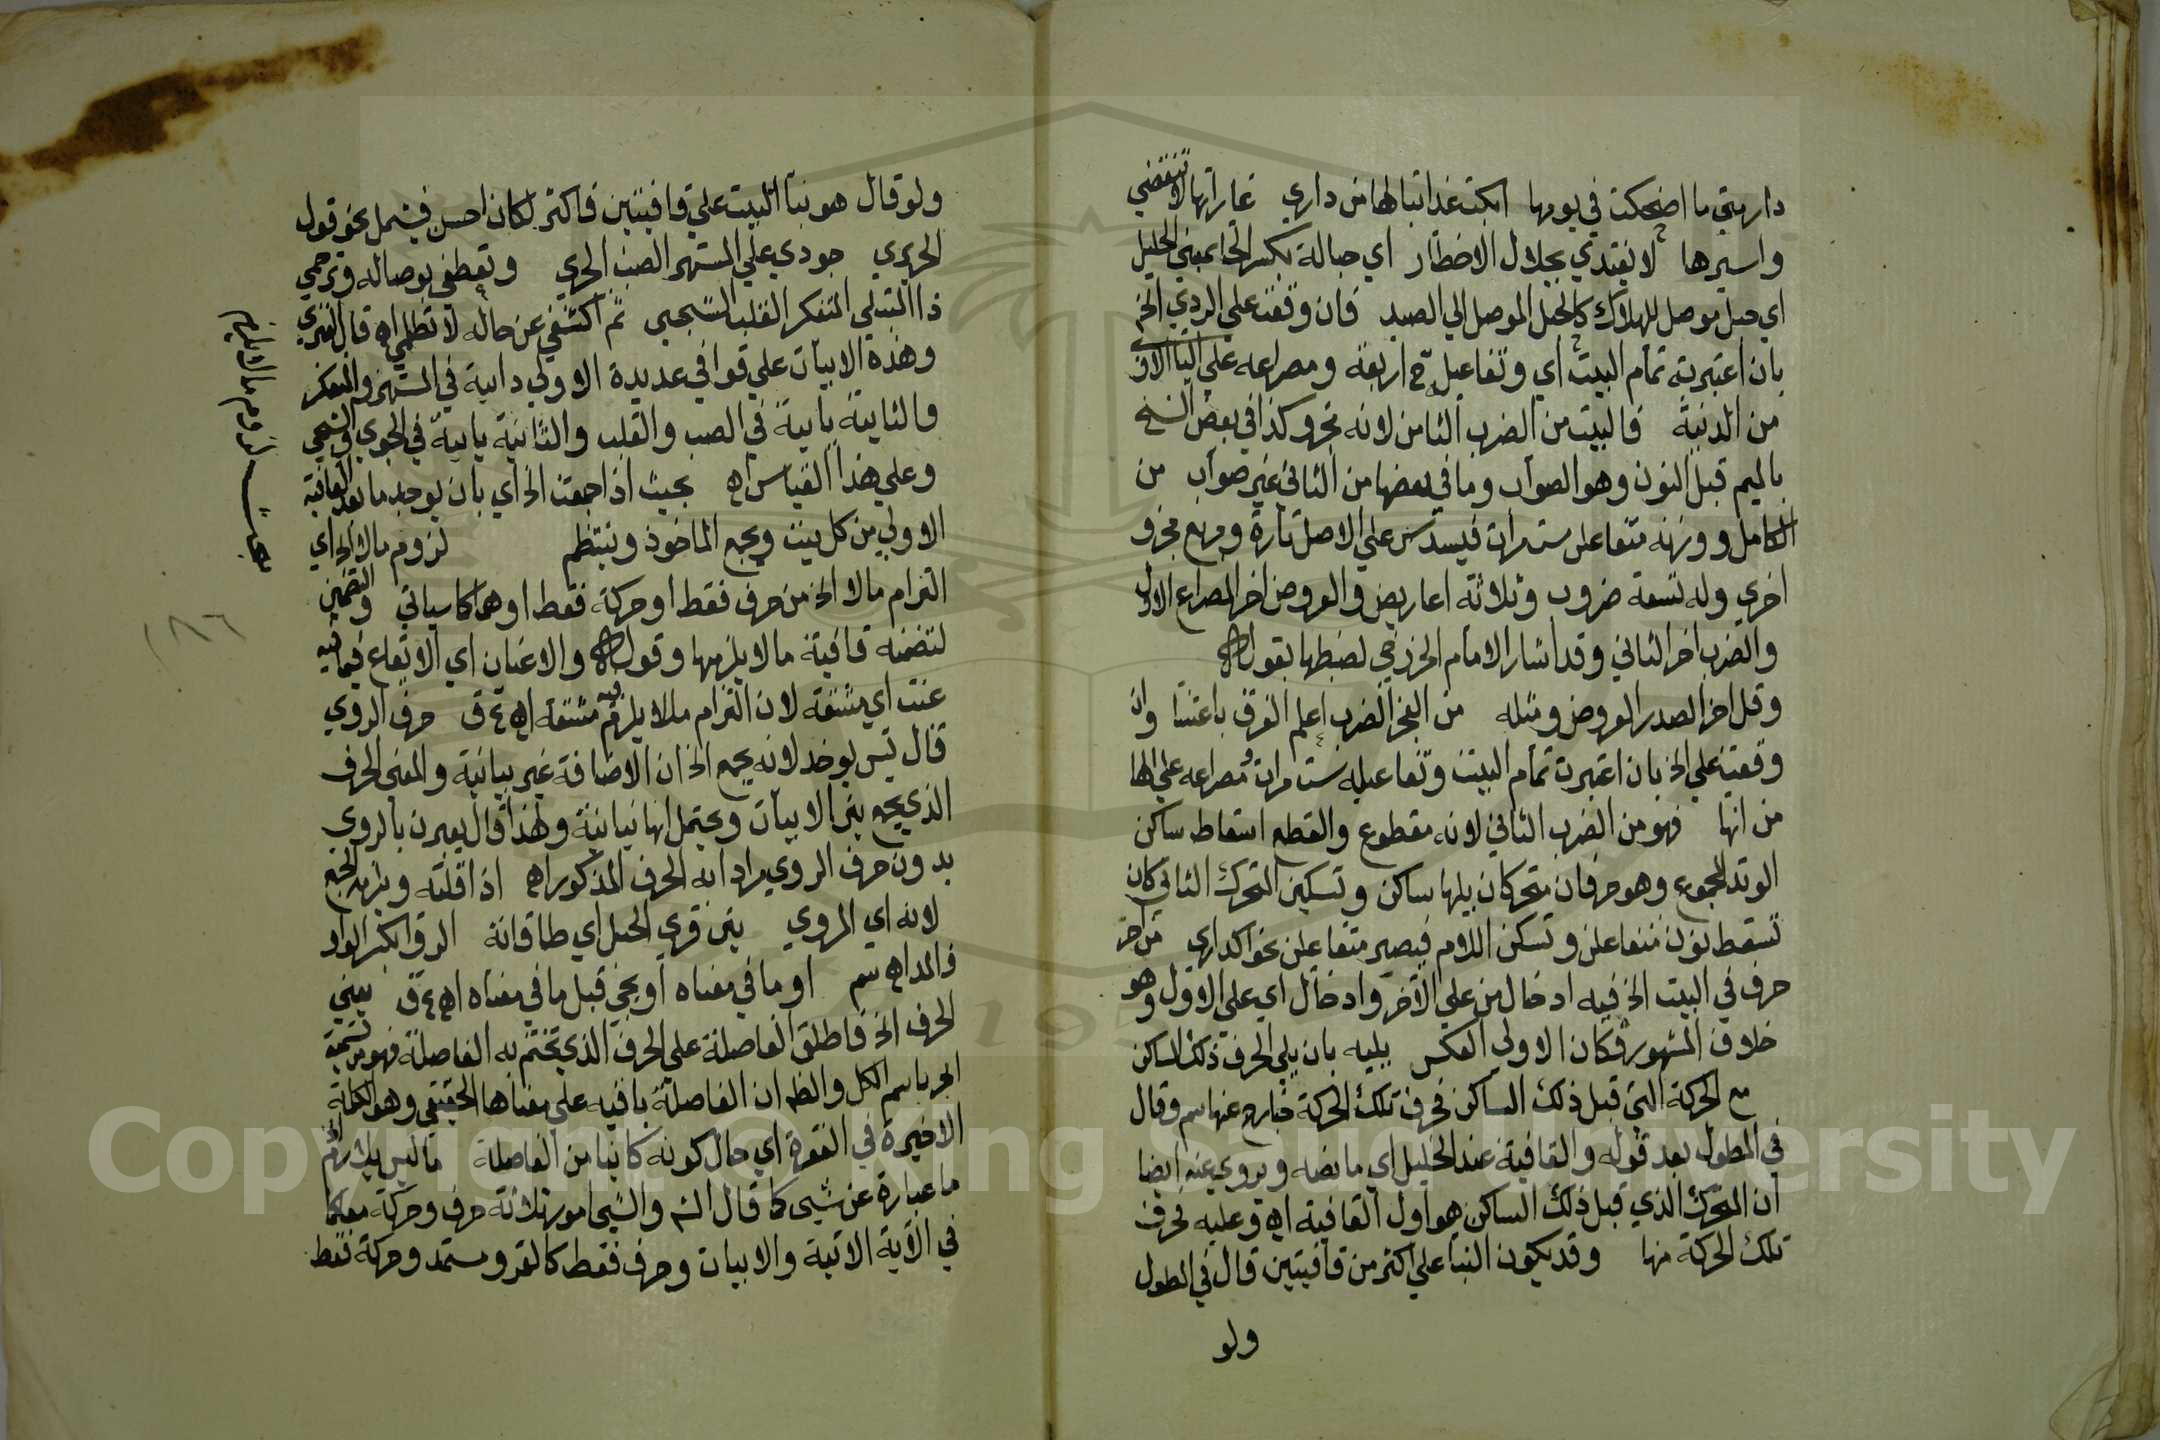 دار متى ما اضحكت في يومها ابكت غدا تبا لها من داري غاراتها لا تنقضي
واسيرها لا يفتدي بجلال الاخطار اي حبالة بكسر الحا بمعنى الحبل
اي حبل موصل للهلاك كالحبل الموصل الي الصيد فان وقفت علي الردي الخ
بان اعتبرته تمام البيت اي وتفاعيله ح اربعة ومصراعه علي اليا الاولي
من الدنية فالبيت من الضرب الثامن لانه مجزو كذا في بعض النسخ
بالميم قبل النون وهو الصواب وما في بعضها من الثاني غير صواب من
الكامل ووزنه متفاعلن ست مرات فيسدس علي الاصل تارة ومربع مجزو
اخري وله تسعة ضروب وثلاثة اعاريض والعروض اخر المصراع الاول
والضرب اخر الثاني وقد اشار الامام الخزرجي لضبطها بقوله
وقل اخر الصدر العروض ومثله من العجز الضرب اعلم الفرق باعتنا وان
وقفت علي الخ بان اعتبرت تمام البيت وتفاعيله ست مرات ومصراعه علي الها
من انها فهو من الضرب الثاني لانه مقطوع والقطع اسقاط ساكن
الوتد المجموع وهو حرفان متحركان يليها ساكن وتسكين المتحرك الثاني كان
تسقط نون متفاعلن وتسكن اللام فيصير متفاعلن نحو اكداري من اخر
حرف في البيت الخ فيه ادخال من علي الآخر وادخال اي علي الاول وهو
خلاف المشهور فكان الاولي العكس يليه بان يلي الحرف ذلك الساكن
مع الحركة التي قبل ذلك الساكن فحرف تلك الحركة خارج عنها سم وقال
في المطول بعد قوله والقافية عند الخليل اي ما نصه ويروي عنه ايضا
ان المتحرك الذي قبل ذلك الساكن هو اول القافية اه وعليه فحرف
تلك الحركة منها وقد يكون البنا علي اكثر من قافيتين قال في المطول
ولو
ولو قال هو بنا البيت علي قافيتين فاكثر لكان احسن فيشمل نحو قول
الحريري جودي علي المستهتر الصب الجوي وتعطفي بوصاله وترحمي
ذا المبتلي المتفكر القلب الشجي ثم اكشفي عن حاله لا تظلمي اه قال الفنري
وهذه الابيات علي قوافي عديدة الاولي رايية في المستهتر والمتفكر
والثانية بايية في الصب والقلب والثانية يايية في الجوي والشجي
وعلي هذا القياس اه بحيث اذا جمعت الخ اي بان يوجد ما بعد القافية
الاولي من كل بيت ويجمع الماخوذ وينتظم لزوم مالا الخ اي
التزام مالا الخ من حرف فقط او حركة فقط او هما كما سياتي والتضمين
لتضمنه قافية مالا يلزمها وقوله والاعنات اي الايقاع فيما فيه
عنت اي مشقة لان التزام مالا يلزم فيه مشقة اه ع ق حرف الروي
قال يس يوخد لانه يجمع الخ ان الاضافة غير بيانية والمعنى الحرف
الذي يجمع بين الابيات ويحتمل انها بيانية ولهذا قال يعبرن بالروي
بدون حرف الروي مرادا به الحرف المذكور اه اذا فتلته ويلزمه الجمع
لانه اي المروي بين قوي الحبل اي طاقاته الروا بكسر الواو
فالمد اه سم او ما في معناه او يجي قبل ما في معناه اه ع ق يعني
الحرف الخ فاطلق الفاصلة علي الحرف الذي تختتم به الفاصلة فهو من تسمية
الجز باسم الكل والظ ان الفاصلة باقيه علي معناها الحقيقي وهو الكلمة
الاخيرة في الفقرة اي حال كونه كاينا من الفاصلة ما ليس بلازم الخ
ما عبارة عن شيى كما قال الش والشيى امور ثلاثة حرف وحركة معا كما
في الآية الاتية والابيات وحرف فقط كالقمر ومستمر وحركة فقط
مبحث لزوم مالا يلزم
١٨٦
Copyright © King Saud University